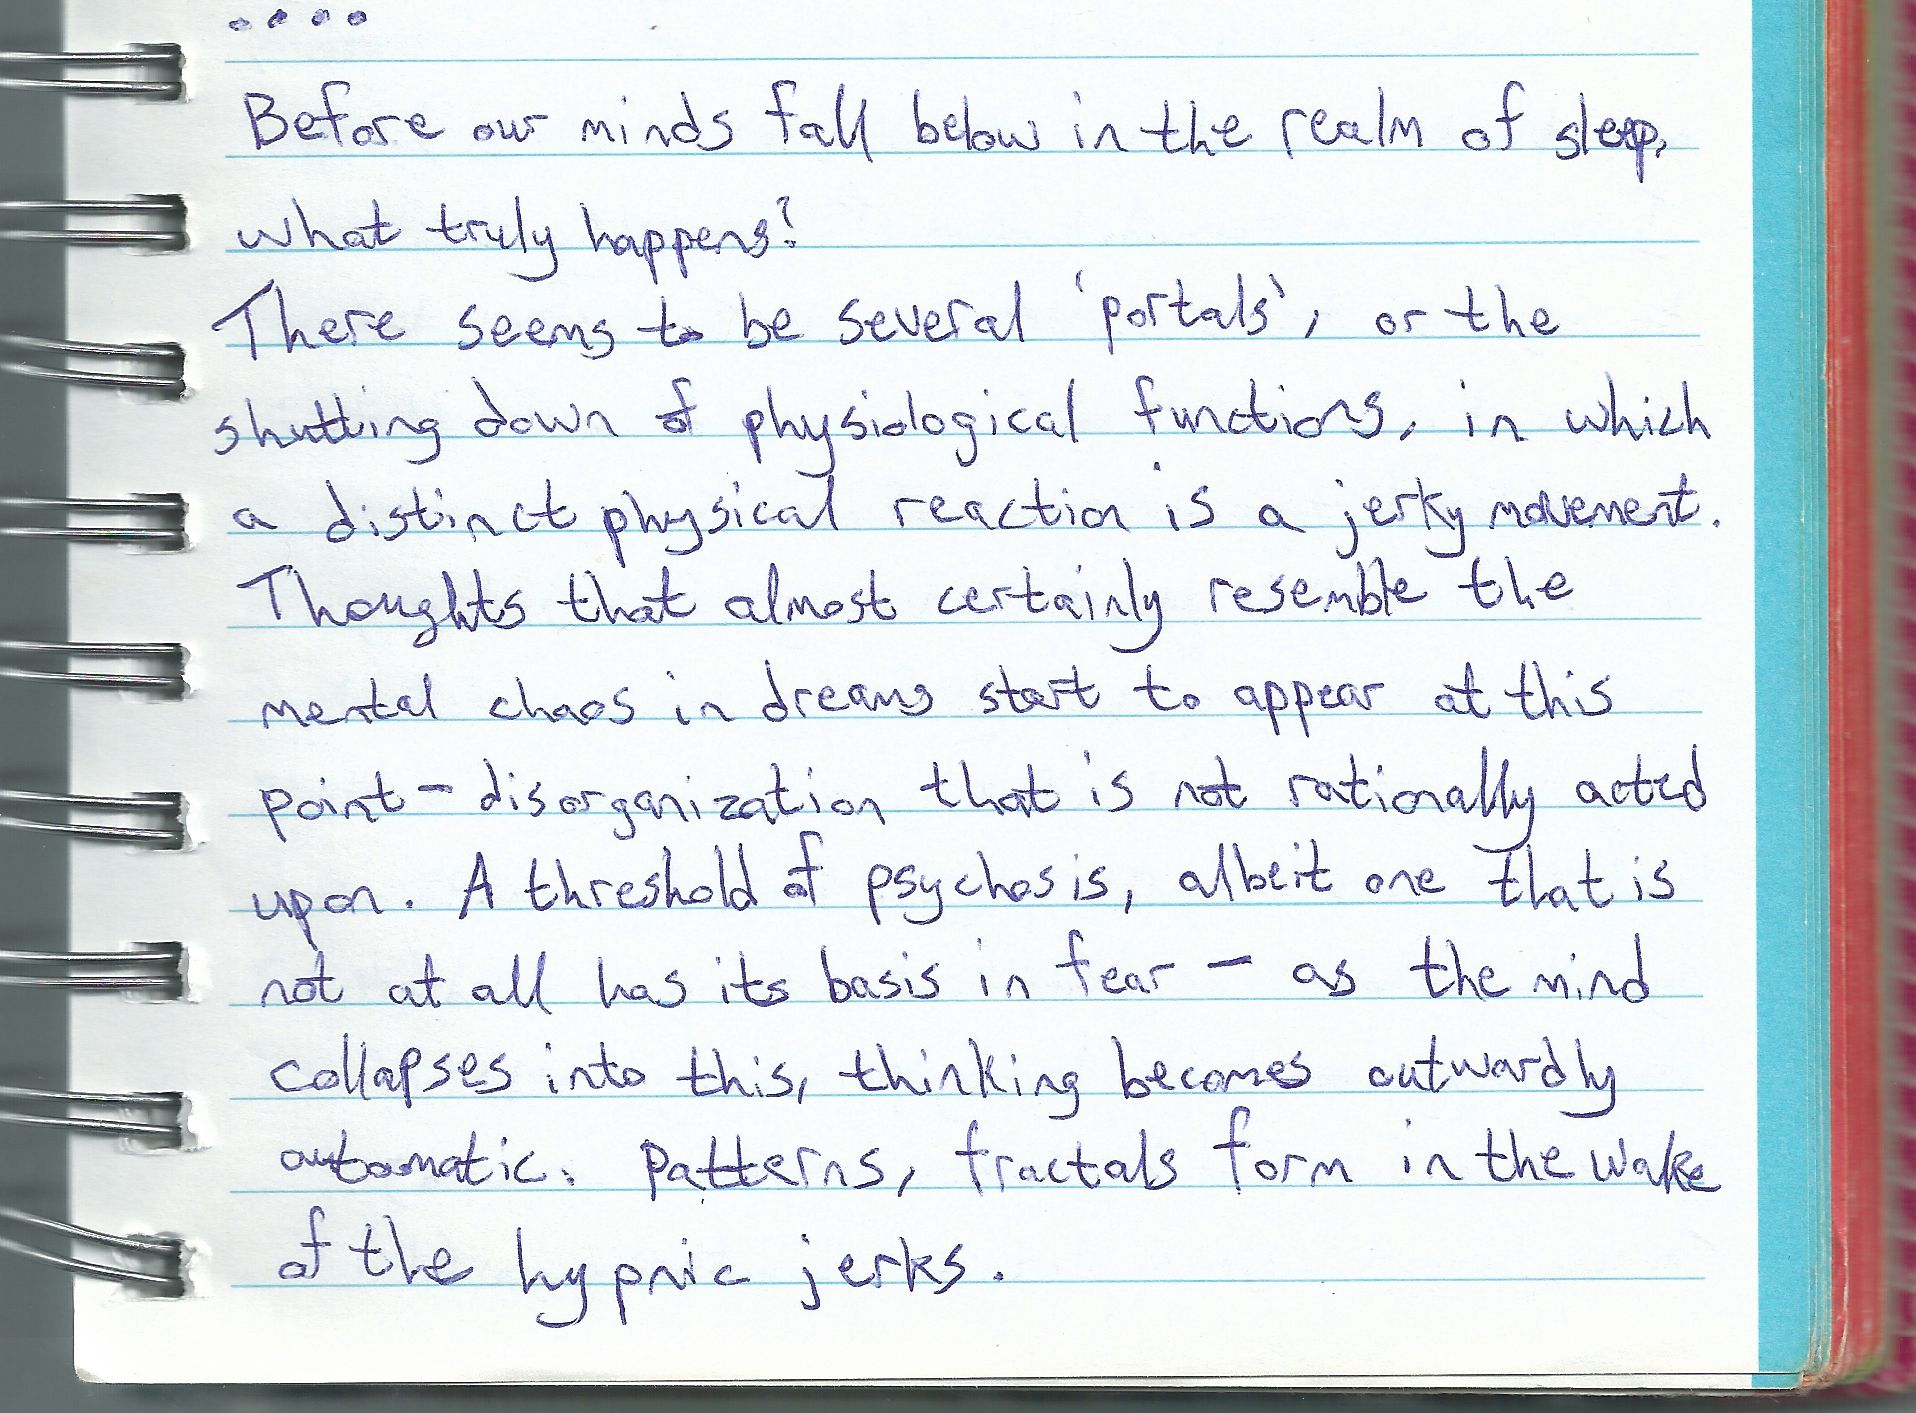 ....
Before our minds fall below in the realm of sleep,
what truly happens?
There seems to be several 'portals', or the
shutting down of physiological functions, in which
a distinct physical reaction is a jerky movement.
Thoughts that almost certainly resemble the
mental chaos in dreams start to appear at this
point - disorganization that is not rationally acted
upon. A threshold of psychosis, albeit one that is
not at all has its basis in fear - as the mind
collapses into this, thinking becomes outwardly
automatic. Patterns, fractals form in the wake
of the hypnic jerks.